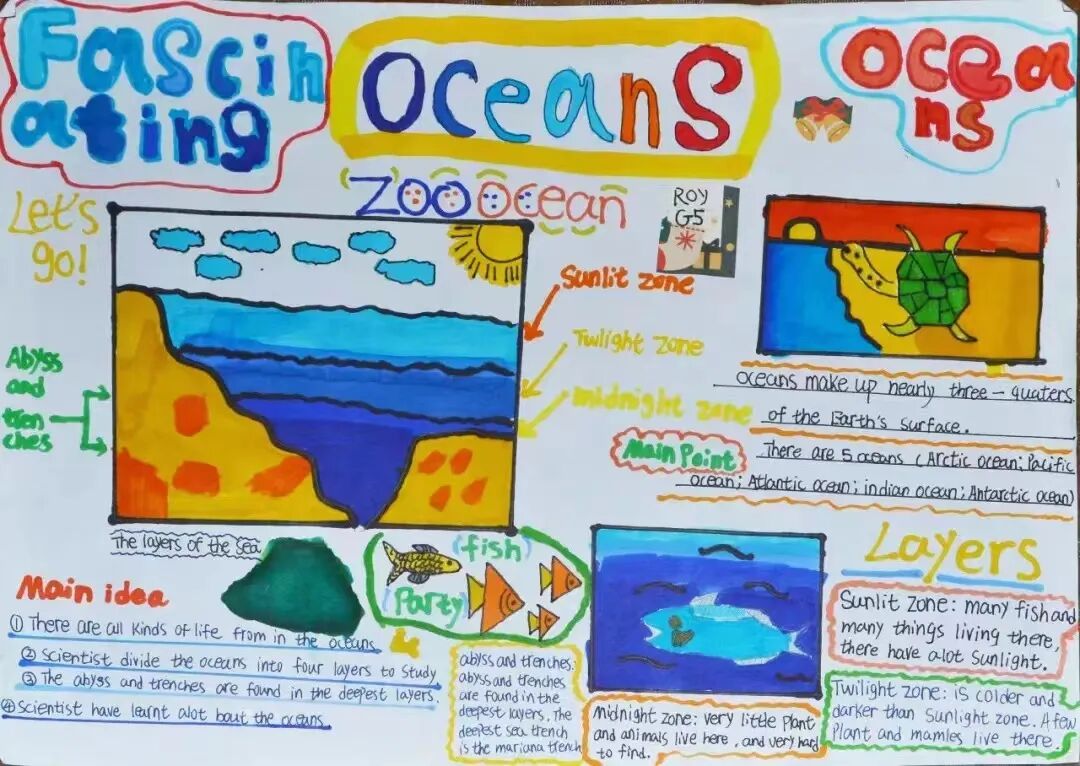 Fascin
ating
Oceans
Ocea
ns
ZOO Ocean
Let's
go!
ROY
G5
Sunlit zone
Twilight zone
midnight zone
Abyss
and
tren
ches
The layers of the sea
oceans make up nearly three - quaters
of the Earth's surface.
Main Point
There are 5 oceans (Arctic ocean; Pacific
ocean; Atlantic ocean; indian ocean; Antarctic ocean)
Main idea
① There are all kinds of life from in the oceans.
② scientist divide the oceans into four layers to study
③ The abyss and trenches are found in the deepest layers.
④ scientist have learnt alot bout the oceans.
(fish)
(Party)
abyss and trenches:
abyss and trenches
are found in the
deepest layers. The
deepest sea trench
is the mariana trench
Midnight zone: very little plant
and animals live here, and very hard
to find.
Layers
Sunlit zone: many fish and
many things living there,
there have alot sunlight.
Twilight zone: is colder and
darker than Sunlight zone. A few
Plant and mamles live there.